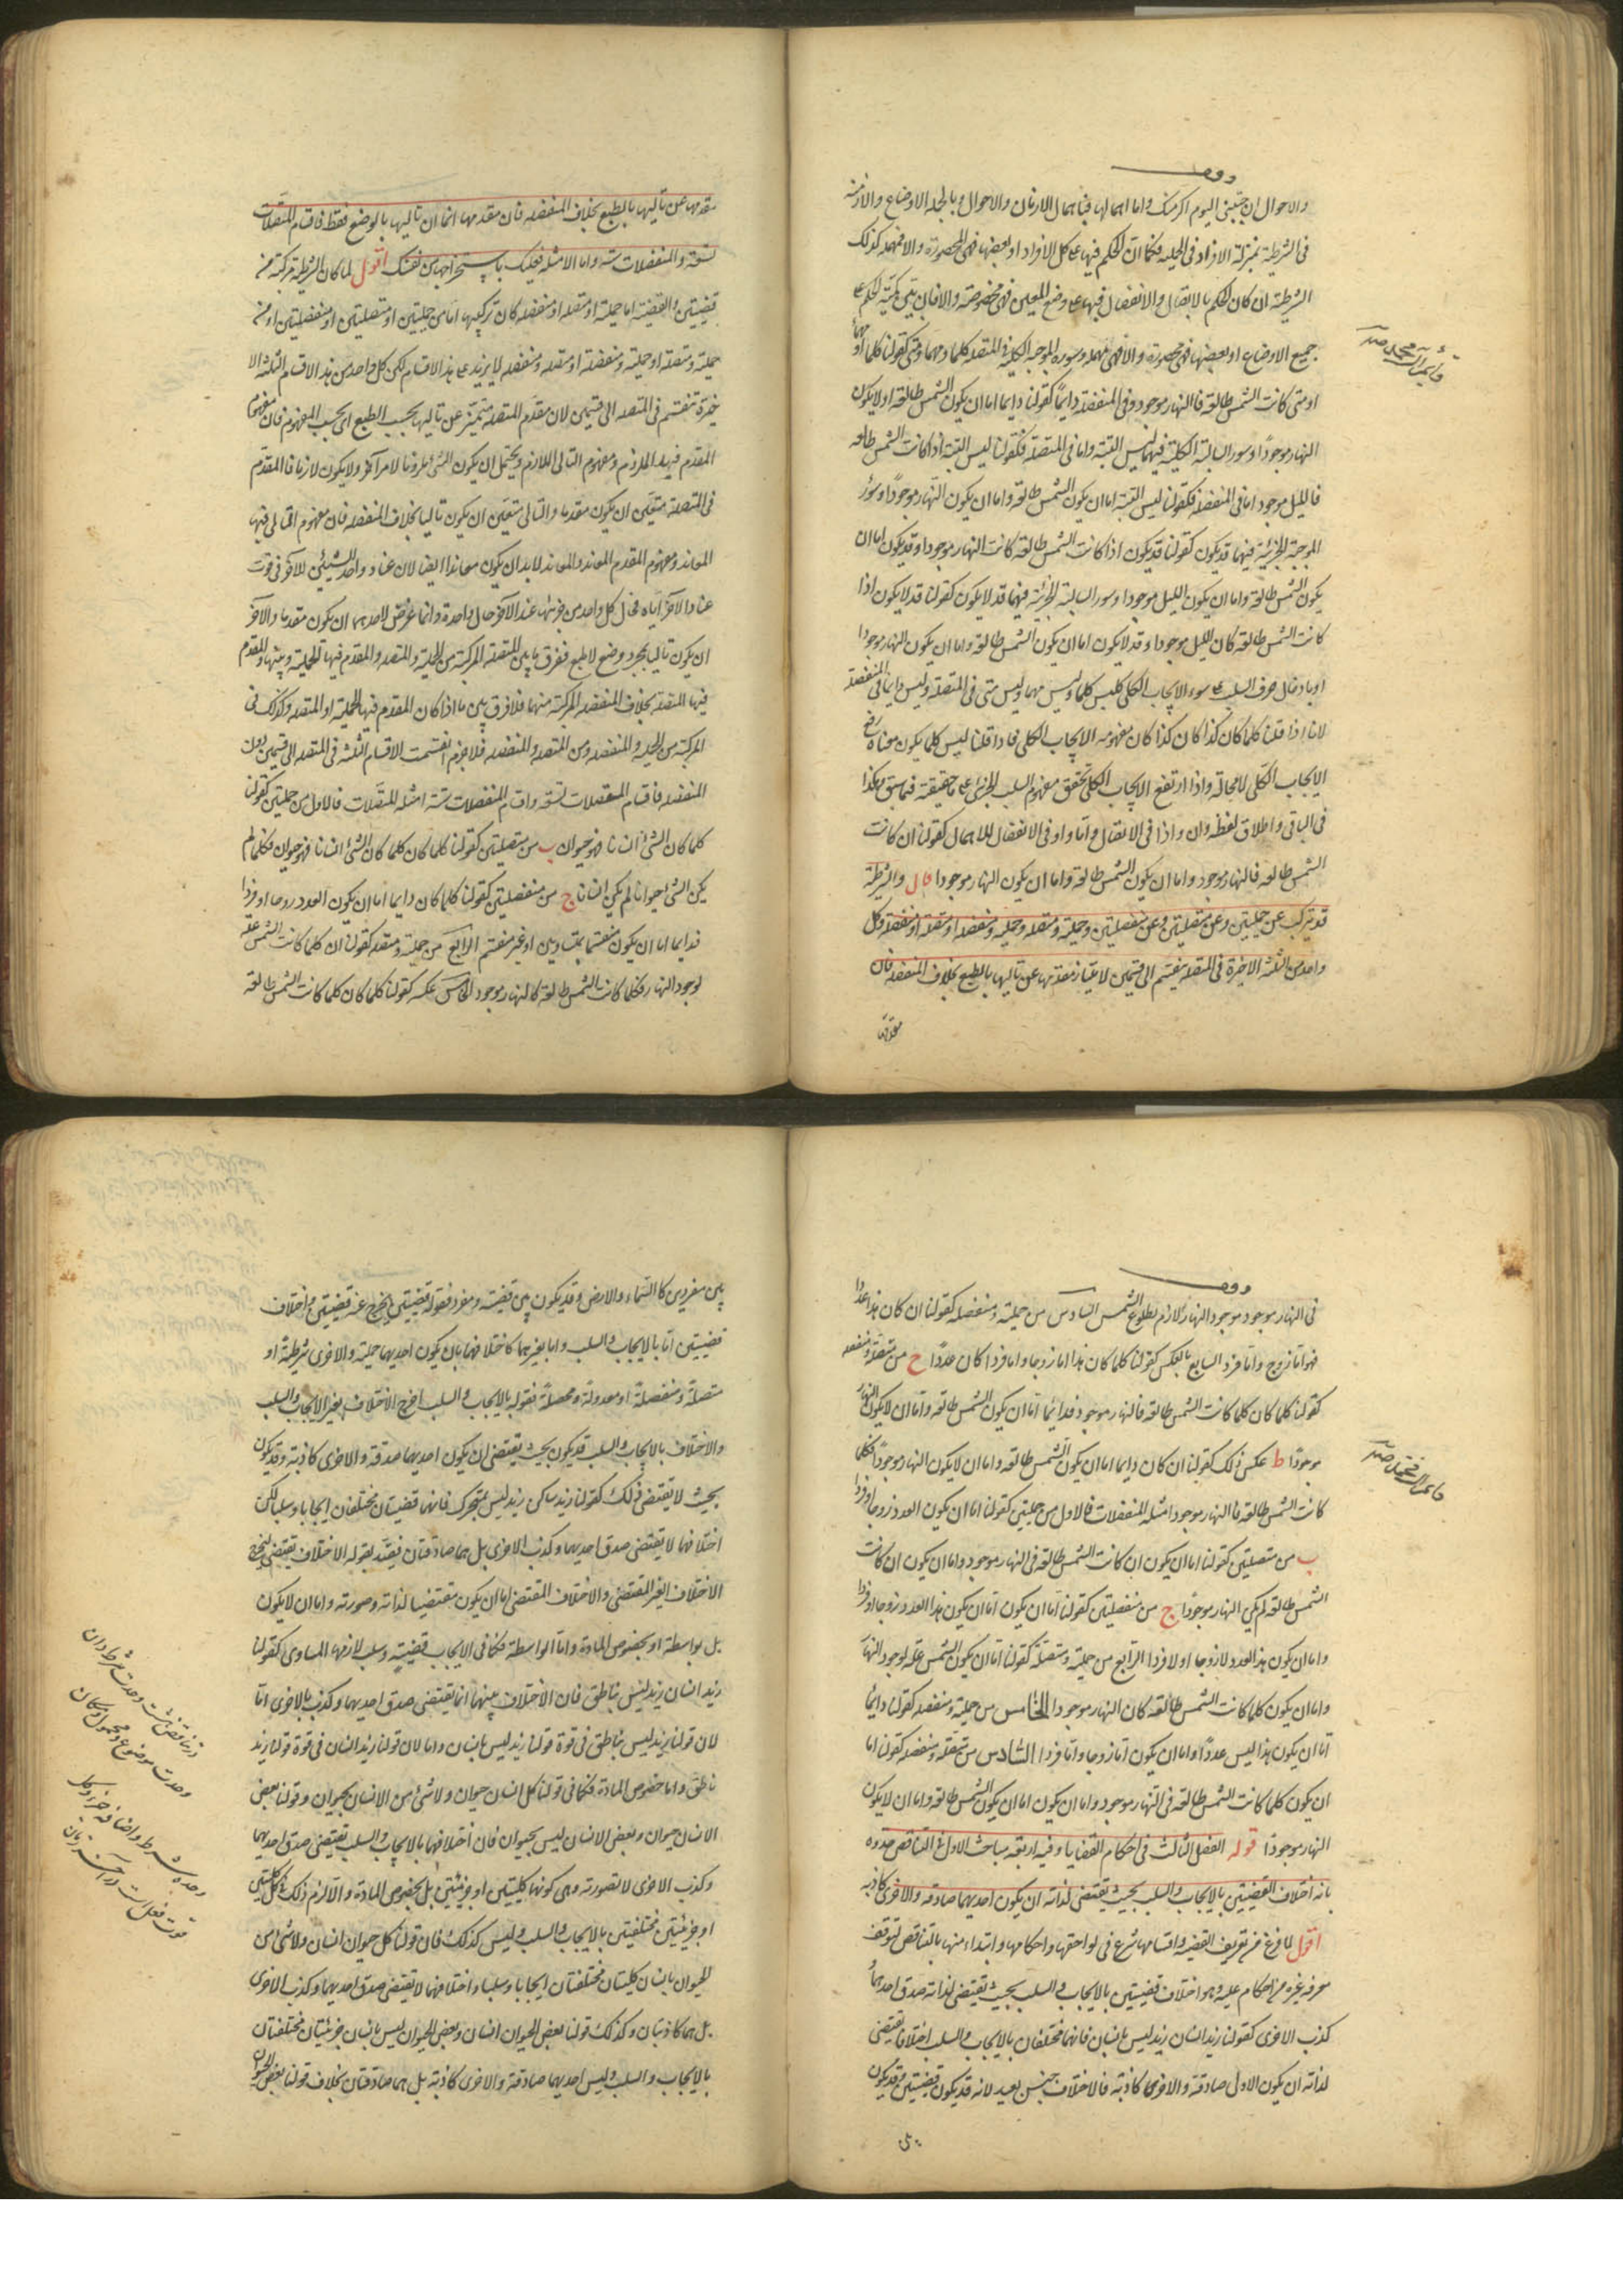 وقف
والاحوال ان جئتنى اليوم اكرمتك واما اهمالها فباهمال الازمان والاحوال وبالجملة الاوضاع والازمنة
فى الشرطية بمنزلة الافراد فى الحملية فكما ان الحكم فيها على كل الافراد او بعضها فهى المحصورة والا فمهملة كذلك
الشرطية ان كان الحكم بالاتصال والانفصال فيها على وضع المعين فهى مخصوصة والا فان بين كمية الحكم على
جميع الاوضاع او بعضها فهى محصورة والا فهى مهملة وسور الموجبة الكلية فى المتصلة كلما ومهما ومتى كقولنا كلما او مهما
او متى كانت الشمس طالعة فالنهار موجود وفى المنفصلة دايمًا كقولنا دايما اما ان يكون الشمس طالعة او لا يكون
النهار موجودًا وسور السالبة الكلية فيهما ليس البتة واما فى المتصلة فكقولنا ليس البتة اذا كانت الشمس طالعة
فالليل موجود اما فى المنفصلة فكقولنا ليس البتة اما ان يكون الشمس طالعة واما ان يكون النهار موجودًا وسور
الموجبة الجزئية فيهما قد يكون كقولنا قد يكون اذا كانت الشمس طالعة كانت النهار موجودا وقد يكون اما ان
يكون الشمس طالعة واما ان يكون الليل موجودا وسور السالبة الجزئية فيهما قد لا يكون كقولنا قد لا يكون اذا
كانت الشمس طالعة كان الليل موجودا وقد لا يكون اما ان يكون الشمس طالعة واما ان يكون النهار موجودا
او بادخال حرف السلب على سور الايجاب الكلى كليس كلما وليس مهما وليس متى فى المتصلة وليس دايما فى المنفصلة
لانا اذا قلنا كلما كان كذا كان كذا كان مفهومه الايجاب الكلى فاذا قلنا ليس كلما يكون معناه رفع
الايجاب الكلى لا محالة واذا ارتفع الايجاب الكلى تحقق مفهوم السلب الجزئى على ما حقيقته فيما سبق وهكذا
فى البواقى واطلاق لفظة وان واذا فى الاتصال واما واو فى الانفصال للاهمال كقولنا ان كانت
الشمس طالعة فالنهار موجود واما ان يكون الشمس طالعة واما ان يكون النهار موجودا قال والشرطية
قد يتركب عن حمليتين وعن متصلتين وعن منفصلتين وحملية ومتصلة وحملية ومنفصلة او متصلة او منفصلة وكل
واحد من الثلثة الاخيرة فى المتصلة ينقسم الى قسمين لامتياز مقدمها عن تاليها بالطبع بخلاف المنفصلة فان
مقدمها
مقدمها عن تاليها بالطبع بخلاف المنفصلة فان مقدمها انما ان تاليها بالوضع فقط فاقسام المتصلات
تسعة والمنفصلات ستة واما الامثلة فعليك باستخراجها من نفسك اقول لما كان الشرطية مركبة من
قضيتين والقضية اما حملية او متصلة او منفصلة كان تركيبها اما من حمليتين او متصلتين او منفصلتين او من
حملية ومتصلة او حملية ومنفصلة او متصلة ومنفصلة لا يزيد على هذه الاقسام لكن كل واحد من هذه الاقسام الثلثة الا
خيرة تنقسم فى المتصلة الى قسمين لان مقدم المتصلة متميز عن تاليها بحسب الطبع اى بحسب المفهوم فان مفهوم
المقدم فيها الملزوم ومفهوم التالى اللازم ويحتمل ان يكون الشئ ملزوما لامر آخر ولا يكون لازما فالمقدم
فى المتصلة متعين ان يكون مقدما والتالى متعين ان يكون تاليا بخلاف المنفصلة فان مفهوم التالى فيها
المعاند ومفهوم المقدم المعاند والمعاند لا بد ان يكون معاندا ايضا لان عناد واحد الشيئين للآخر فى قوة
عناد الآخر اياه فحال كل واحد من جزئيها عند الآخر حال واحدة وانما عرض لاحدهما ان يكون مقدما والآخر
ان يكون تاليا بمجرد وضع لا طبع ففرق ما بين المتصلة المركبة من الحملية والمتصلة والمقدم فيها الحملية وبينها والمقدم
فيها المتصلة بخلاف المنفصلة المركبة منهما فلا فرق بين ما اذا كان المقدم فيها الحملية او المتصلة وكذلك فى
المركبة من الحملية والمنفصلة ومن المتصلة والمنفصلة فلا جرم انقسمت الاقسام الثلثة فى المتصلة الى قسمين دون
المنفصلة فاقسام المتصلات تسعة واقسام المنفصلات ستة امثلة المتصلات فالاول من حمليتين كقولنا
كلما كان الشئ انسانا فهو حيوان ب من متصلتين كقولنا كلما كان كلما كان الشئ انسانا فهو حيوان فكلما لم
يكن الشئ حيوانا لم يكن انسانا ج من منفصلتين كقولنا كلما كان دايما اما ان يكون العدد زوجا او فردا
فدايما اما ان يكون منقسما بمتساويين او غير منقسم الرابع من حملية ومتصلة كقولنا ان كلما كانت الشمس علة
لوجود النهار فكلما كانت الشمس طالعة كالنهار موجود الخامس عكسه كقولنا كلما كان كلما كانت الشمس طالعة
وقف
فى النهار موجود موجود النهار لازم لطلوع الشمس السادس من حملية ومنفصلة كقولنا ان كان هذا عددا
فهو اما زوج واما فرد السابع بالعكس كقولنا كلما كان هذا اما زوجا واما فردا كان عددًا ح من متصلة ومنفصلة
كقولنا كلما كان كلما كانت الشمس طالعة فالنهار موجود فدائما اما ان يكون الشمس طالعة واما ان لا يكون النهار
موجودًا ط عكس ذلك كقولنا ان كان دايما اما ان يكون الشمس طالعة واما ان لا يكون النهار موجودًا فكلما
كانت الشمس طالعة فالنهار موجود امثلة المنفصلات فالاول من حمليتين كقولنا اما ان يكون العدد زوجا او فردا
ب من متصلتين كقولنا اما ان يكون ان كانت الشمس طالعة فى النهار موجود واما ان يكون ان كانت
الشمس طالعة لم يكن النهار موجودًا ج من منفصلتين كقولنا اما ان يكون اما ان يكون هذا العدد زوجا او فردا
واما ان يكون هذا العدد لا زوجا او لا فردا الرابع من حملية ومتصلة كقولنا اما ان يكون الشمس علة لوجود النهار
واما ان يكون كلما كانت الشمس طالعة كان النهار موجودا الخامس من حملية ومنفصلة كقولنا دايمًا
اما ان يكون هذا ليس عددًا واما ان يكون اما زوجا واما فردا السادس من متصلة ومنفصلة كقولنا اما
ان يكون كلما كانت الشمس طالعة فى النهار موجود واما ان يكون اما ان يكون الشمس طالعة واما ان لا يكون
النهار موجودًا قوله الفصل الثالث فى احكام القضايا وفيه اربعة مباحث الاول فى التناقض حدوه
بانه اختلاف القضيتين بالايجاب والسلب بحيث يقتضى لذاته ان يكون احديهما صادقة والاخرى كاذبة
اقول لما فرغ من تعريف القضية واقسامها شرع فى لواحقها واحكامها وابتداء منها بالتناقض لتوقف
معرفة غيره من احكام عليه وهو اختلاف قضيتين بالايجاب والسلب بحيث يقتضى لذاته صدق احديهما
كذب الاخرى كقولنا زيد انسان زيد ليس بانسان فانهما مختلفان بالايجاب والسلب اختلافا يقتضى
لذاته ان يكون الاول صادقة والاخرى كاذبة فالاختلاف جنس بعيد لانه قد يكون قضيتين وقد يكون
بين
بين مفردين كالسماء والارض وقد يكون بين قضية ومفرد فقوله قضيتين يخرج عنه قضيتين واختلاف
قضيتين اما بالايجاب والسلب واما بغيرهما كاختلافهما بان يكون احديهما حملية والاخرى شرطية او
متصلة ومنفصلة او معدولة ومحصلة فقوله بالايجاب والسلب اخرج الاختلاف بغير الايجاب والسلب
والاختلاف بالايجاب والسلب قد يكون بحيث يقتضى ان يكون احديهما صدقة والاخرى كاذبة وقد يكون
بحيث لا يقتضى ذلك كقولنا زيد ساكن زيد ليس بمتحرك فانهما قضيتان مختلفتان ايجابا وسلبا لكن
اختلافهما لا يقتضى صدق احديهما وكذب الاخرى بل هما صادقتان فيقيد بقوله الاختلاف يقتضى ليخرج
الاختلاف الغير المقتضى والاختلاف المقتضى اما ان يكون مقتضيا لذاته وصورته واما ان لا يكون
بل بواسطة او بخصوص المادة واما الواسطة فكما فى الايجاب قضية وسلب لازمها المساوى كقولنا
زيد انسان زيد ليس بناطق فان الاختلاف بينهما انما يقتضى صدق احديهما وكذب الاخرى اما
لان قولنا زيد ليس بناطق فى قوة قولنا زيد ليس بانسان واما لان قولنا زيد انسان فى قوة قولنا زيد
ناطق واما خصوص المادة فكما فى قولنا كل انسان حيوان ولا شئ من الانسان بحيوان وقولنا بعض
الانسان حيوان وبعض الانسان ليس بحيوان فان اختلافهما بالايجاب والسلب يقتضى صدق احديهما
وكذب الاخرى لا لصورته وهى كونهما كليتين او جزئيتين بل بخصوص المادة والا لزم ذلك فى كل كليتين
او جزئيتين مختلفتين بالايجاب والسلب وليس كذلك فان قولنا كل حيوان انسان ولا شئ من
الحيوان بانسان كليتان مختلفتان ايجابا وسلبا واختلافهما لا يقتضى صدق احديهما وكذب الاخرى
بل هما كاذبتان وكذلك قولنا بعض الحيوان انسان وبعض الحيوان ليس بانسان جزئيتان مختلفتان
بالايجاب والسلب وليس احديهما صادقة والاخرى كاذبة بل هما صادقتان بخلاف قولنا بعض الحيوان
در تناقض هشت وحدت شرط دان
وحدت موضوع ومحمول ومكان
وحدة شرط واضافه جزء وكل
قوت وفعل است در آخر زمان